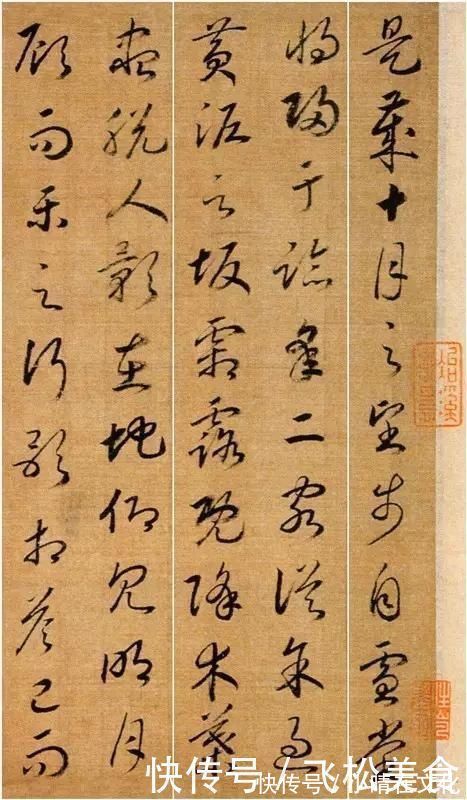 是歲十月之望步自雪堂
將歸于臨皋二客從余過
黃泥之坂霜露既降木葉
盡脫人影在地仰見明月
顧而樂之行歌相答已而
快传号 / 飞松美食
快传号